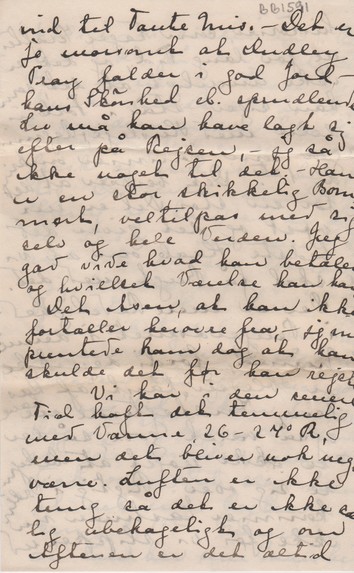 BB1591
ind til Tante Mis. – Det er
jo morsomt at Dudley
Tray falder i god Jord –
hans Skönhed el. sprudlende
Liv må han have lagt sig
efter på Rejsen, – jeg så
ikke noget til det. – Han
er en stor, skikkelig Bom
mert, veltilpas med sig
selv og hele Verden. Jeg
gad vide hvad han betaler
og hvilket Værelse han har
Det Asen, at han ikke
fortæller herovre fra, – jeg
puntede ham dog at han
skulde det før han rejst
Vi har i den senere
Tid haft det temmelig
med Varme, 26 – 27° R,
men det bliver nok
værre. Luften er ikke
tung så det er ikke
lig ubehageligt og om
Aftenen er det altid